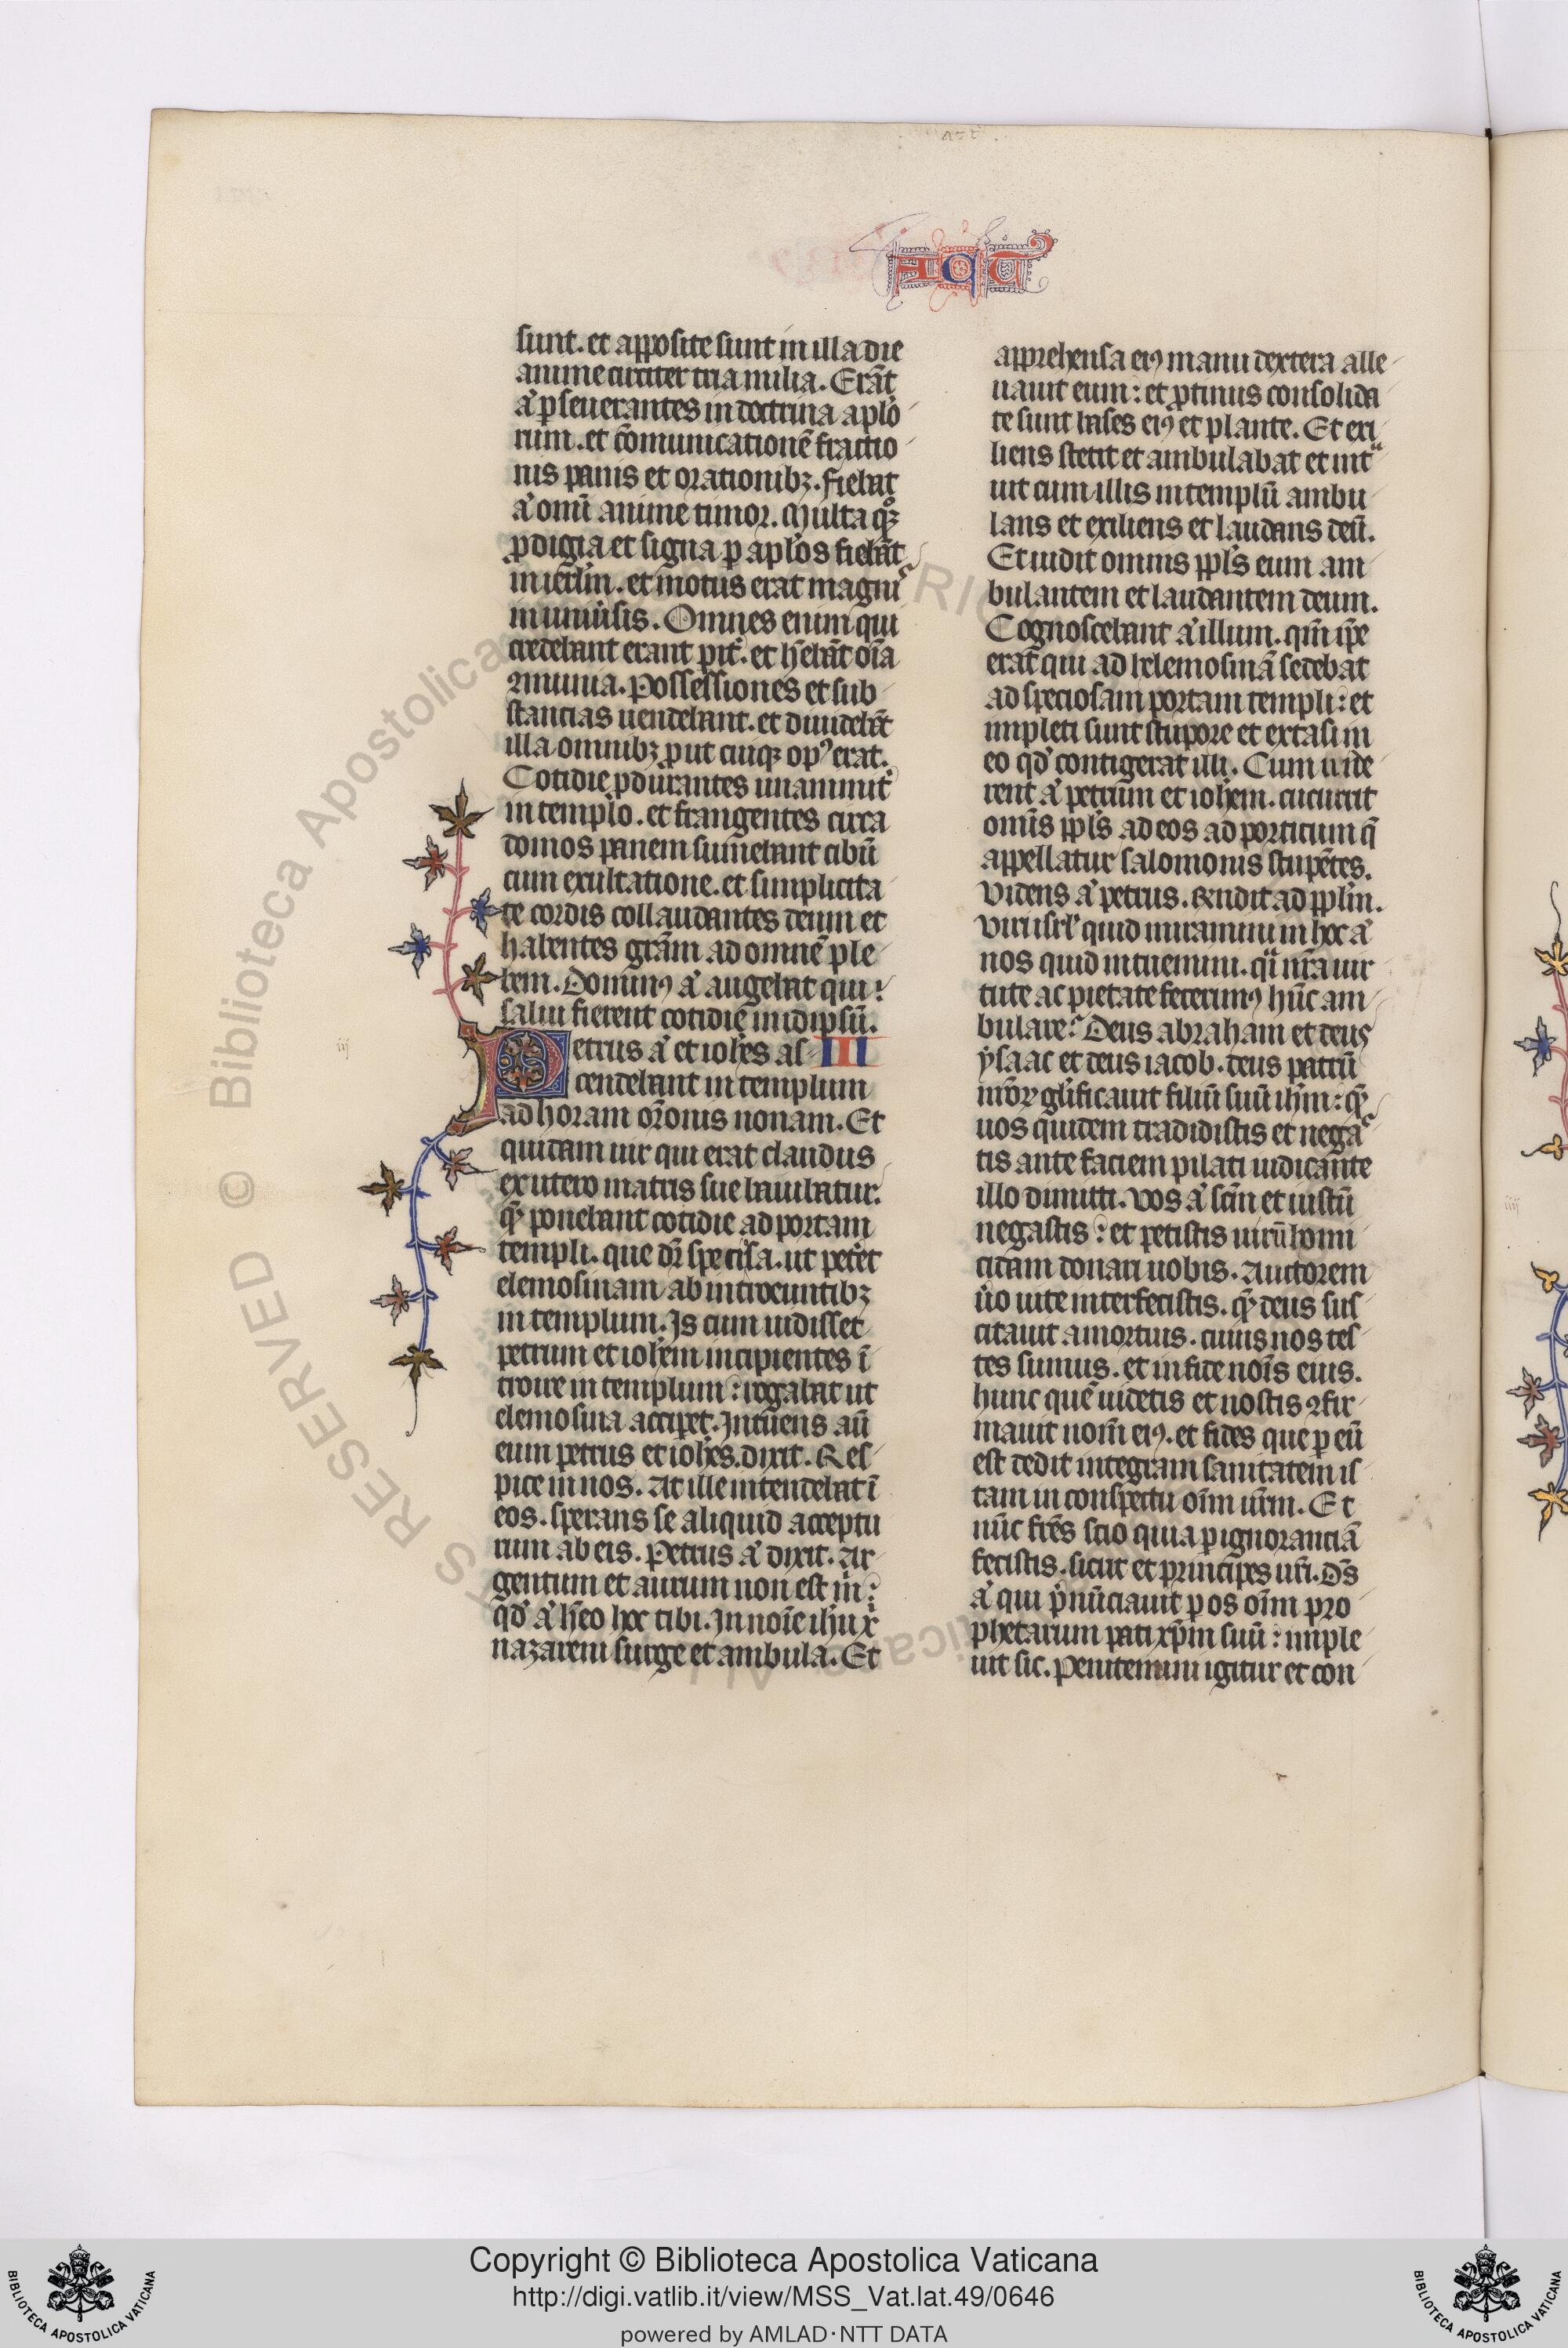 ACT
sunt. et apposite sunt in illa die
anime circiter tria milia. Erãt
aͥ pseuerantes in doctrina aplo
rum. et cõmunicationẽ fractio
nis panis et orationibꝫ. fiebat
aͥ omni anime timor. Multa qꝫ
ꝓdigia et signa p aplos fiebãt
in ierlm. et metus erat magnꝰ
in uniũsis. Omnes enim qui
credebant erant pit̾. et hẽbãt oĩa
ꝯmunia. Possessiones et sub
stancias uendebant. et diuidebãt
illa omnibꝫ ꝓut cuiqꝫ opꝰ erat.
Cotidie ꝑdurantes unanimit̾
in templo. et frangentes circa
domos panem sumebant cibũ
cum exultatione. et simplicita
te cordis collaudantes deum et
habentes grãm ad omnẽ ple
bem. Dominꝰ aͥ augebat qui
salui fierent cotidie in idipsũ.
Petrus aͥ et iohẽs as III
cendebant in templum
ad horam orõnis nonam. Et
quidam uir qui erat claudus
ex utero matris sue baiulatur.
quẽ ponebant cotidie ad portam
templi. que dr̃ speciosa. ut petet̾
elemosinam ab introeuntibꝫ
in templum. Is cum uidisset
petrum et iohẽm incipientes ĩ
troire in templum: rogabat ut
elemosina accipet̾. Intuens aũ
eum petrus et iohẽs. dixit. Res
pice in nos. At ille intendebat ĩ
eos. sperans se aliquid acceptu
rum ab eis. Petrus aͥ dixit. Ar
gentum et aurum non est m̾:
qd̾ aͥ hẽo hoc tibi. In noĩe ihũ xͥ
nazareni surge et ambula. Et
apprehensa eiꝰ manu dextera alle
uauit eum: et ꝓtinus consolida
te sunt bases eiꝰ et plante. Et exi
liens stetit et ambulabat et intͣ
uit cum illis in templũ ambu
lans et exiliens et laudans deũ.
Et uidit omnis ppls eum am
bulantem et laudantem deum.
Cognoscebant aͥ illum. qm̃ ip̃e
erat qui ad helemosinã sedebat
ad speciosam portam templi: et
impleti sunt stupore et extasi in
eo qd̾ contigerat illi. Cum uide
rent aͥ petrum et iohẽm. cucurrit
omĩs ppls ad eos ad porticum q̃
appellatur salomonis stupẽtes.
Videns aͥ petrus. rñdit ad pplm.
Viri isrl̾ quid miramini in hoc aͥ
nos quid intuemini. qͣi nr̃a uir
tute ac pietate fecerimꝰ hũc am
bulare? Deus abraham et deus
ysaac et deus iacob. deus patrũ
nr̃oꝝ glificauit filiũ suũ ihm: quẽ
uos quidem tradidistis et nega
tis ante faciem pilati iudicante
illo dimitti. Vos aͥ scm̃ et iustũ
negastis: et petistis uirũ homi
cidam donari uobis. Auctorem
ũo uite interfecistis. quẽ deus sus
citauit a mortuis. cuius nos tes
tes sumus. et in fide noĩs eius.
hunc quẽ uidetis et nostis ꝯfir
mauit nom̃ eiꝰ. et fides que p eũ
est dedit integram sanitatem is
tam in conspectu oĩm ur̃m. Et
nũc fr̃es scio quia p ignoranciã
fecistis. sicut et principes ur̃i. D̃s
aͥ qui p̾nũciauit p os oĩm pro
phetarum pati xp̃m suũ: imple
uit sic. Penitemini igitur et con
iij
iiij
© Biblioteca Apostolica Vaticana
RESERVED
Copyright © Biblioteca Apostolica Vaticana
http://digi.vatlib.it/view/MSS_Vat.lat.49/0646
powered by AMLAD·NTT DATA
BIBLIOTECA APOSTOLICA VATICANA
BIBLIOTECA APOSTOLICA VATICANA